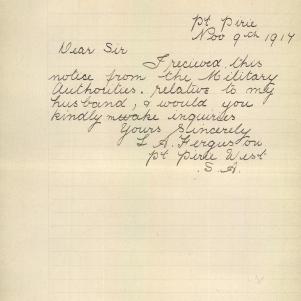 Pt. Pirie
Nov 9th 1917
Dear Sir
I recieved this
notice from the Military
Authorities. relative to my
husband, & would you
kindly make inquiries
Yours Sincerely
L A. Ferguson
Pt Pirie West
S. A.